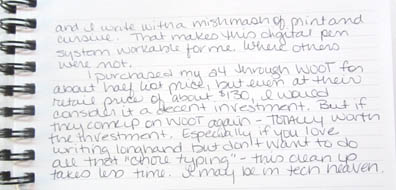 and I write with a mishmash of print and
cursive. That makes this digital pen
system workable for me. Where others
were not.
I purchased my s4 through WOOT for
about half list price, but even at their
retail price of about $130, I would
consider it a decent investment. But if
they come up on WOOT again - TOTALLY worth
the investment. Especially if you love
writing longhand but don't want to do
all that "chore typing" - this clean up
takes less time. I may be in tech heaven.